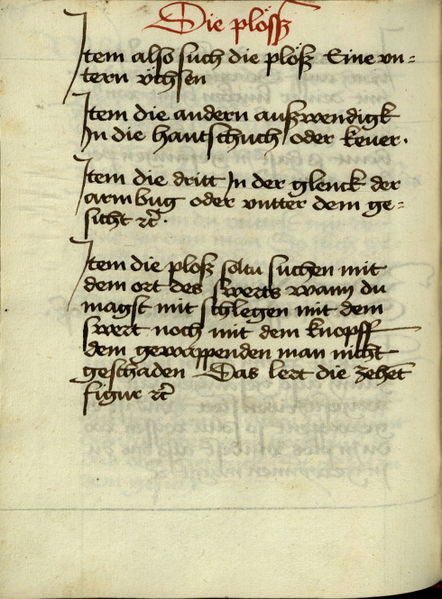 Die plösß
Item also such die plöß Eine vn=
tern v̈chsen
Item die andern außwendigk
In die hantschuch oder keuer.
Item die dritt In der glenck der
armbug oder vntter dem ge=
sicht ꝛc̃.
Item die ploß soltu suchen mit
dem ort des swerts wann du
magst mit schlegen mit dem
swert noch mit dem knopff
dem gewappenden man nicht
geschaden Das lert die zehet
figur ꝛc̃